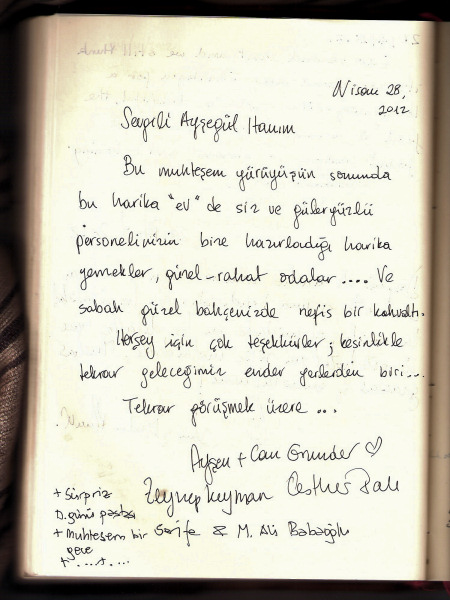 Nisan 28,
2012
Sevgili Ayşegül Hanım
Bu muhteşem yürüyüşün sonunda
bu harika "ev" de siz ve güleryüzlü
personelinizin bize hazırladığı harika
yemekler, güzel-rahat odalar .... Ve
sabah güzel bahçenizde nefis bir kahvaltı.
Herşey için çok teşekkürler; kesinlikle
tekrar geleceğimiz ender yerlerden biri...
Tekrar görüşmek üzere ...
Ayşen + Can
Zeynep Keyman
+ Sürpriz
D.günü pastası
+ Muhteşem bir Şerife & M. Ali Babaoğlu
gece
+ ... + ...